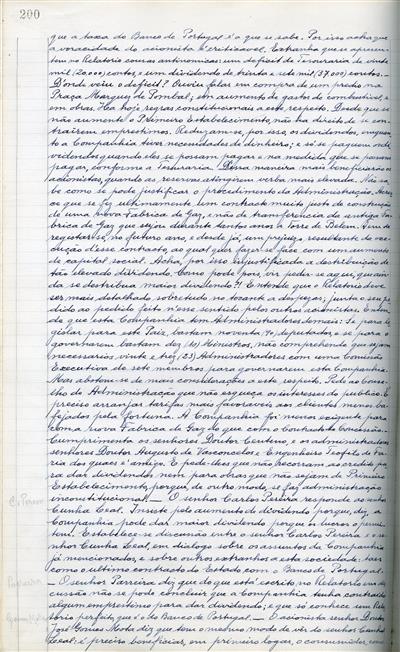 200
que a taxa do Banco de Portugal é o que se sabe. Por isso acha que
a voracidade do acionista é criticavel. Extranha que se apresen-
tem no Relatorio cousas antinomicas: um deficit de Tesouraria de vinte
mil (20.000) contos, e um dividendo de trinta e sete mil (37.000) contos.—
D'onde veiu o deficit? Ouviu falar em compra de um predio na
Praça Marquez de Pombal; em aumento de gastos de combustivel, e
em obras. Ha hoje regras constitucionais a este respeito. Desde que se
não aumente o Primeiro Estabelecimento, não ha direito de se con-
trairem emprestimos. Reduzam-se, por isso, os dividendos, enquan-
to a Companhia tiver necessidades de dinheiro; e só se paguem os di-
videndos quando eles se possam pagar e na medida que se possam
pagar, conforme a Tesouraria. Dessa maneira mais beneficiarão os
acionistas, quando as reservas atingirem verba mais elevada. Não sa-
be como se pode justificar o procedimento da Administração. Acres-
ce que se fez ultimamente um contracto muito justo de construção
de uma nova Fabrica de Gaz, e não de transferencia da antiga Fa-
brica de Gaz que sujou durante tantos anos a Torre de Belem. Vem a
requerer-se, no futuro ano, e desde já, um prejuizo resultante da exe-
cução d'esse contracto, ao qual quer fazer-se face com um aumento
de capital social. Acha, por isso injustificada a destribuição de
tão elevado dividendo. Como pode pois, vir pedir-se aqui, que ain-
da se destribua maior dividendo?! Entende que o Relatorio deve
ser mais detalhado, sobretudo no tocante a despezas; junta o seu pe-
dido ao pedido feito n'esse sentido pelos outros acionistas. Enten-
de que esta Companhia tem Administradores demais: Se para le-
gislar para este Paiz bastam noventa, 90, deputados, e se para o
governarem bastam dez (10) Ministros, não comprehende que sejam
necessarios vinte e trez (23) Administradores com uma Comissão
Executiva de sete membros para governarem esta Companhia.
Mas abstem-se de mais considerações a este respeito. Pede ao Conse-
lho de Administração que não esqueça os interesses do publico. É
preciso arranjar tarifas mais favoraveis aos clientes menos ba-
fejados pela fortuna. A Companhia foi menos exigente pa-
ra com a nova Fabrica de Gaz do que com o Contracto da Concessão.
Cumprimenta os senhores Doutor Centeno, e os administradores
senhores Doutor Augusto de Vasconcelos e Engenheiro Teofilo de Fa-
ria dos quais é amigo. E pede-lhes que não recorram ao credito pa-
ra dar dividendos, nem para obras que não sejam de Primeiro
Estabelecimento, porque, de outro modo, se faz administração
inconstitucional.— O senhor Carlos Pereira responde ao senhor
C. Pereira
Cunha Leal. Insiste pelo aumento de dividendo porque, diz, a
Companhia pode dar maior dividendo porque os lucros o permi-
tem. Estabelece-se discussão entre o senhor Carlos Pereira e o se-
nhor Cunha Leal, em dialogo sobre os assuntos da Companhia
já mencionados, e sobre outros extranhos a esta sociedade, tais
como o ultimo contracto do Estado com o Banco de Portugal.
— O senhor Parreira diz que do que está escrito no Relatorio em dis-
cussão não se pode concluir que a Companhia tenha contraido
algum emprestimo para dar dividendo; e que só conhece um Rela-
torio perfeito, que é o do Banco de Portugal.— O acionista senhor Doutor
José Gomes Mota diz que tem o mesmo modo de vêr do senhor Cunha
Leal: é preciso beneficiar, em primeiro logar, o consumidor, como